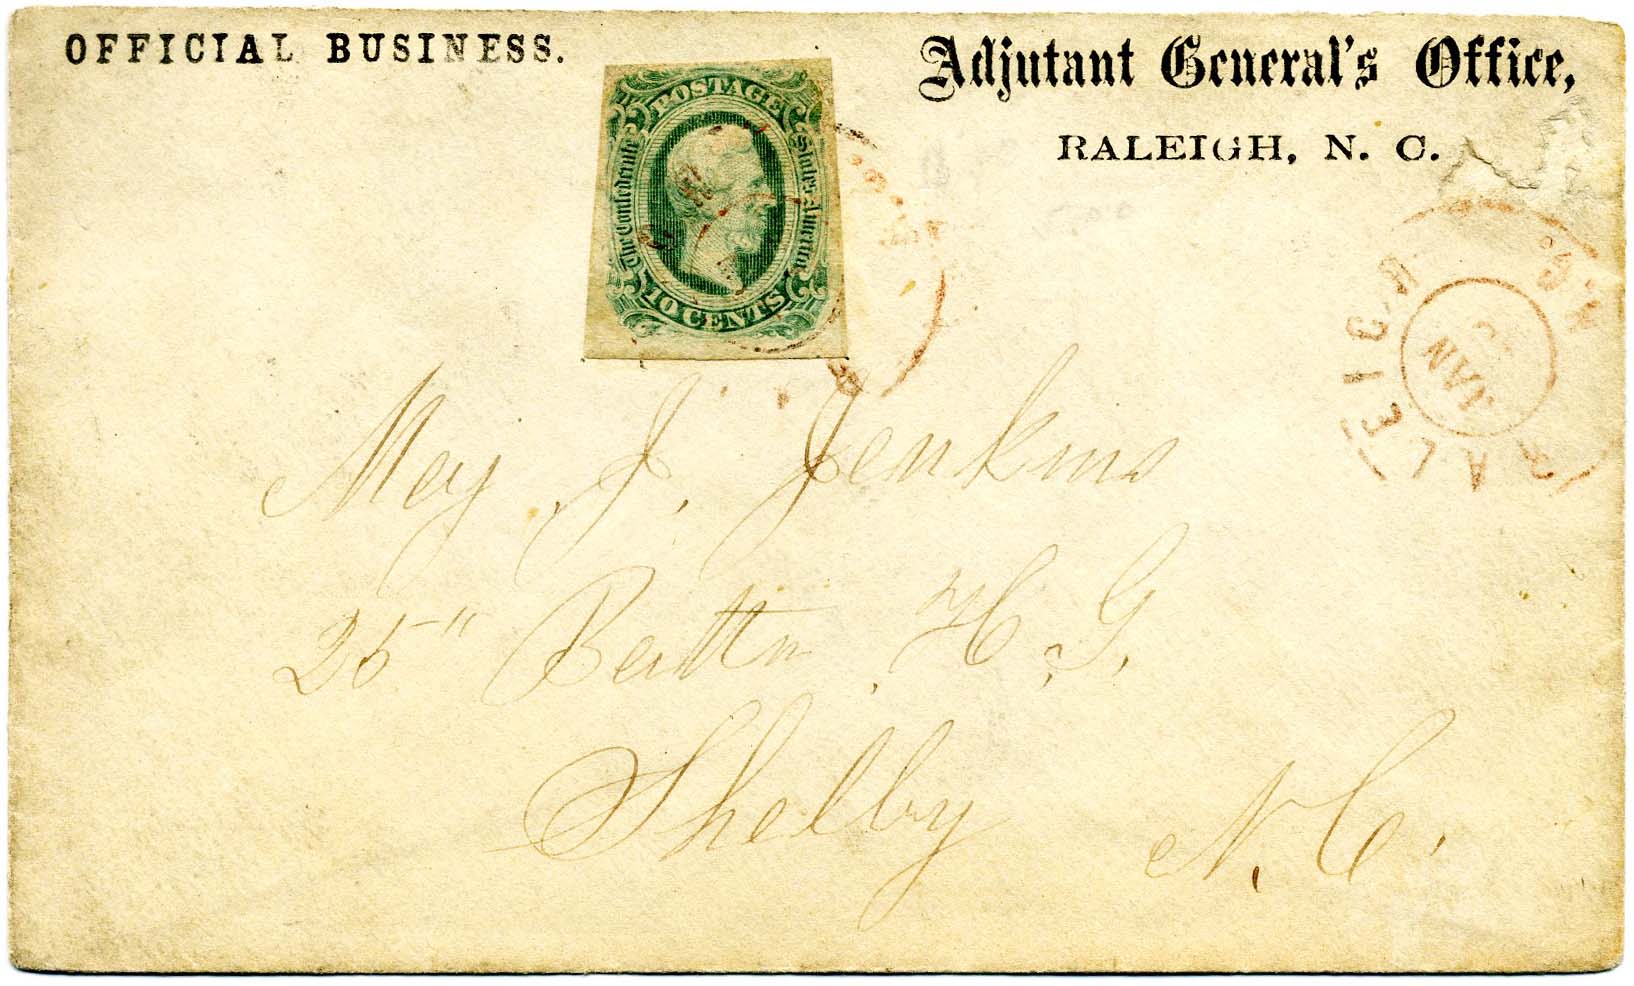 OFFICIAL BUSINESS.
Adjutant General's Office,
RALEIGH, N. C.
POSTAGE
The Confederate States America
10 CENTS
RALEIGH N.C.
JAN
Mey J. Jenkins
25" Battn H. G.
Shelby N. C.